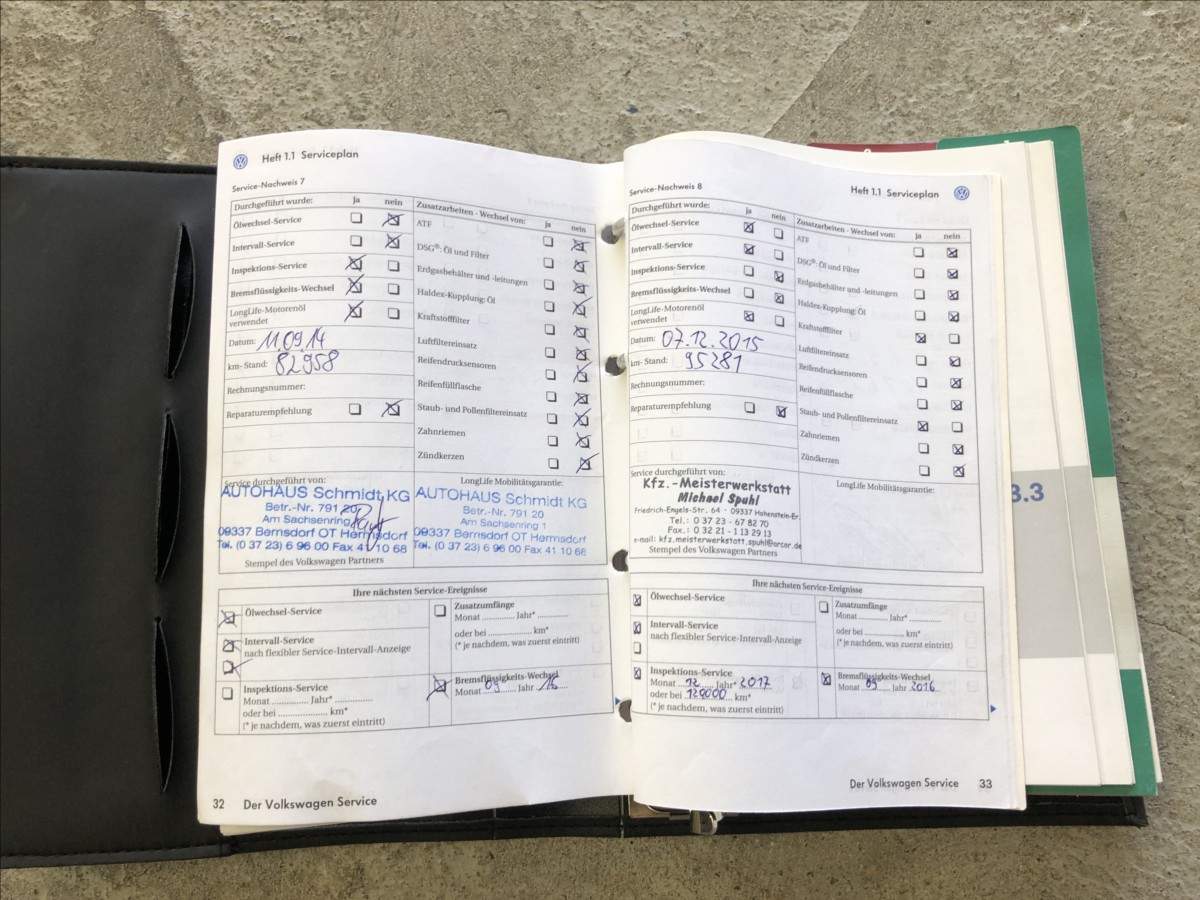 Heft 1.1 Serviceplan
Service-Nachweis 7
Durchgeführt wurde: ja nein
Ölwechsel-Service
Intervall-Service
Inspektions-Service
Bremsflüssigkeits-Wechsel
LongLife-Motorenöl
verwendet
Datum: 11.09.14
km- Stand: 82958
Rechnungsnummer:
Reparaturempfehlung
Zusatzarbeiten - Wechsel von: ja nein
ATF
DSG®: Öl und Filter
Erdgasbehälter und -leitungen
Haldex-Kupplung: Öl
Kraftstofffilter
Luftfiltereinsatz
Reifendrucksensoren
Reifenfüllflasche
Staub- und Pollenfiltereinsatz
Zahnriemen
Zündkerzen
Service durchgeführt von:
AUTOHAUS Schmidt KG
Betr.-Nr. 791 20
Am Sachsenring
09337 Bernsdorf OT Hermsdorf
Tel. (0 37 23) 6 96 00 Fax 41 10 68
Stempel des Volkswagen Partners
LongLife Mobilitätsgarantie:
AUTOHAUS Schmidt KG
Betr.-Nr. 791 20
Am Sachsenring 1
09337 Bernsdorf OT Hermsdorf
Tel. (0 37 23) 6 96 00 Fax 41 10 68
Ihre nächsten Service-Ereignisse
Ölwechsel-Service
Intervall-Service
nach flexibler Service-Intervall-Anzeige
Inspektions-Service
Monat ............. Jahr* .............
oder bei ................. km*
(* je nachdem, was zuerst eintritt)
Zusatzumfänge
Monat ............. Jahr* .............
oder bei ................. km*
(* je nachdem, was zuerst eintritt)
Bremsflüssigkeits-Wechsel
Monat 09 Jahr 16
32 Der Volkswagen Service
Service-Nachweis 8
Heft 1.1 Serviceplan
Durchgeführt wurde: ja nein
Ölwechsel-Service
Intervall-Service
Inspektions-Service
Bremsflüssigkeits-Wechsel
LongLife-Motorenöl
verwendet
Datum: 07.12.2015
km- Stand: 95281
Rechnungsnummer:
Reparaturempfehlung
Zusatzarbeiten - Wechsel von: ja nein
ATF
DSG®: Öl und Filter
Erdgasbehälter und -leitungen
Haldex-Kupplung: Öl
Kraftstofffilter
Luftfiltereinsatz
Reifendrucksensoren
Reifenfüllflasche
Staub- und Pollenfiltereinsatz
Zahnriemen
Zündkerzen
Service durchgeführt von:
Kfz.-Meisterwerkstatt
Michael Spuhl
Friedrich-Engels-Str. 64 · 09337 Hohenstein-Er.
Tel.: 0 37 23 - 67 82 70
Fax.: 0 32 21 - 1 13 29 13
e-mail: kfz.meisterwerkstatt.spuhl@arcor.de
Stempel des Volkswagen Partners
LongLife Mobilitätsgarantie:
Ihre nächsten Service-Ereignisse
Ölwechsel-Service
Intervall-Service
nach flexibler Service-Intervall-Anzeige
Inspektions-Service
Monat 12 Jahr* 2017
oder bei 120000 km*
(* je nachdem, was zuerst eintritt)
Zusatzumfänge
Monat ............. Jahr* .............
oder bei ................. km*
(* je nachdem, was zuerst eintritt)
Bremsflüssigkeits-Wechsel
Monat 09 Jahr 2016
Der Volkswagen Service 33
3.3